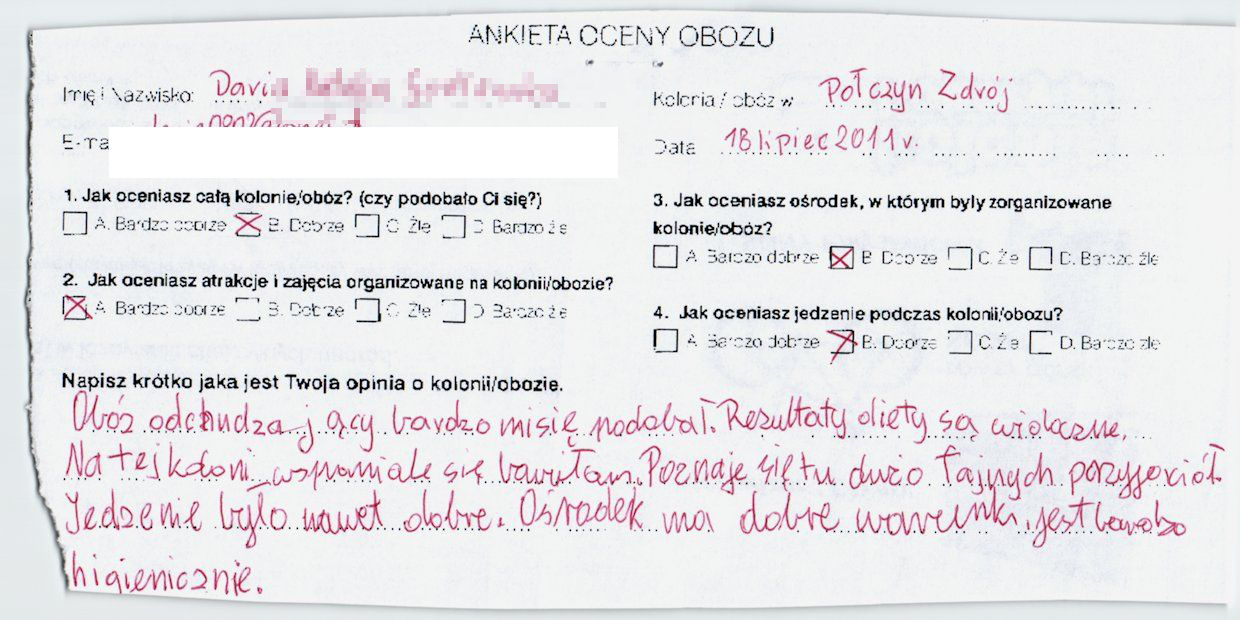 ANKIETA OCENY OBOZU
Imię i Nazwisko: Daria
Kolonia / obóz w Połczyn Zdrój
E-ma
Data 18 lipiec 2011 r.
1. Jak oceniasz całą kolonie/obóz? (czy podobało Ci się?)
A. Bardzo dobrze B. Dobrze C. Źle D. Bardzo źle
2. Jak oceniasz atrakcje i zajęcia organizowane na kolonii/obozie?
A. Bardzo dobrze B. Dobrze C. Źle D. Bardzo źle
3. Jak oceniasz ośrodek, w którym były zorganizowane
kolonie/obóz?
A. Bardzo dobrze B. Dobrze C. Źle D. Bardzo źle
4. Jak oceniasz jedzenie podczas kolonii/obozu?
A. Bardzo dobrze B. Dobrze C. Źle D. Bardzo źle
Napisz krótko jaka jest Twoja opinia o kolonii/obozie.
Obóz odchudzający bardzo mi się podobał. Rezultaty diety są widoczne.
Na tej koloni wspaniale się bawiłam. Poznaje się tu dużo fajnych przyjaciół.
Jedzenie było nawet dobre. Ośrodek ma dobre warunki, jest bardzo
higienicznie.